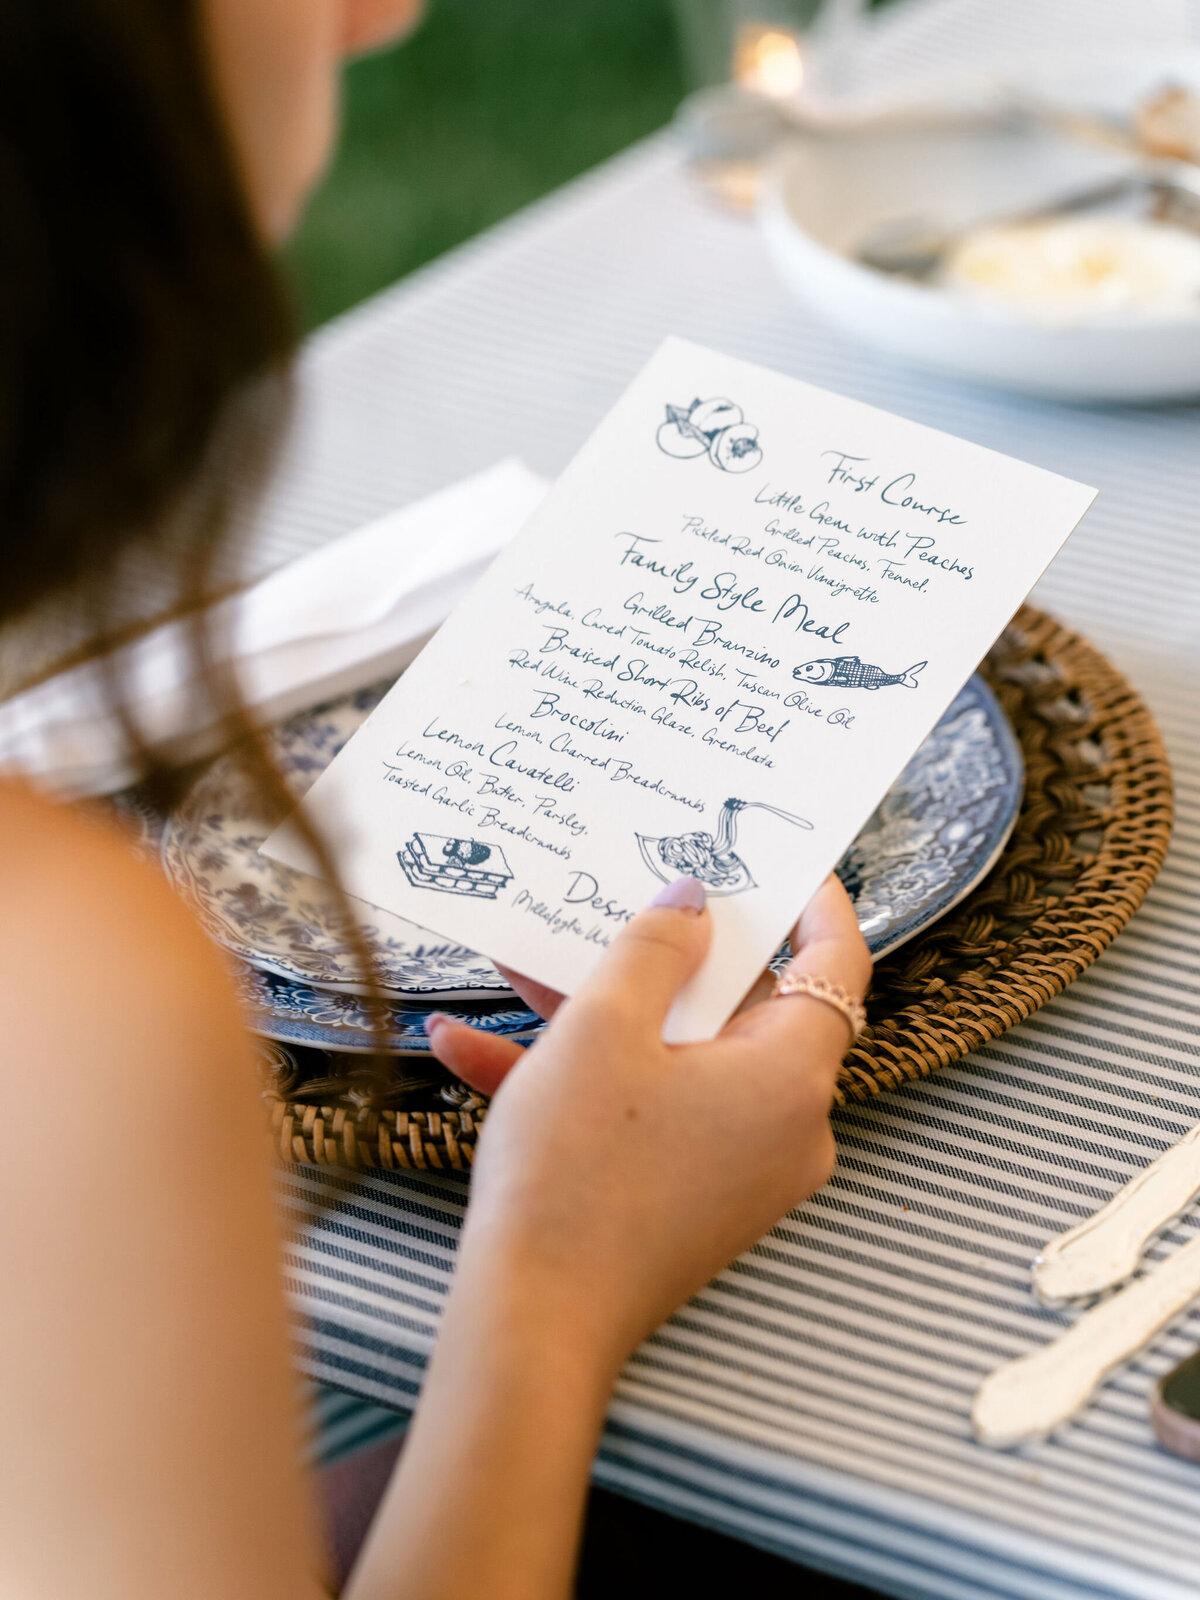 First Course
Little Gem with Peaches
Grilled Peaches, Fennel,
Pickled Red Onion Vinaigrette
Family Style Meal
Grilled Branzino
Arugula, Cured Tomato Relish, Tuscan Olive Oil
Braised Short Ribs of Beef
Red Wine Reduction Glaze, Gremolata
Broccolini
Lemon, Charred Breadcrumbs
Lemon Cavatelli
Lemon Oil, Butter, Parsley,
Toasted Garlic Breadcrumbs
Desse
Millefoglie We